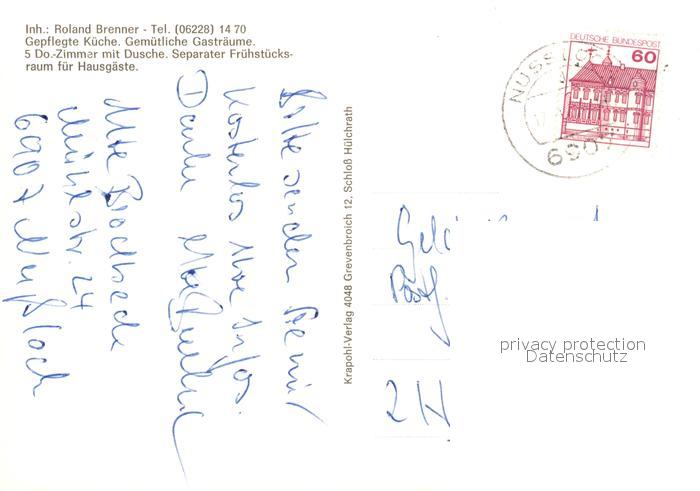 Inh.: Roland Brenner - Tel. (06228) 14 70
Gepflegte Küche. Gemütliche Gasträume.
5 Do.-Zimmer mit Dusche. Separater Frühstücks-
raum für Hausgäste.
Bitte senden Sie mir
kostenlos Ihre Infos.
Danke
Alte
Mühlstr. 24
6907 Nußloch
Krapohl-Verlag 4048 Grevenbroich 12, Schloß Hülchrath
DEUTSCHE BUNDESPOST
60
NUSSLOCH
690
Postf
2 H
privacy protection
Datenschutz